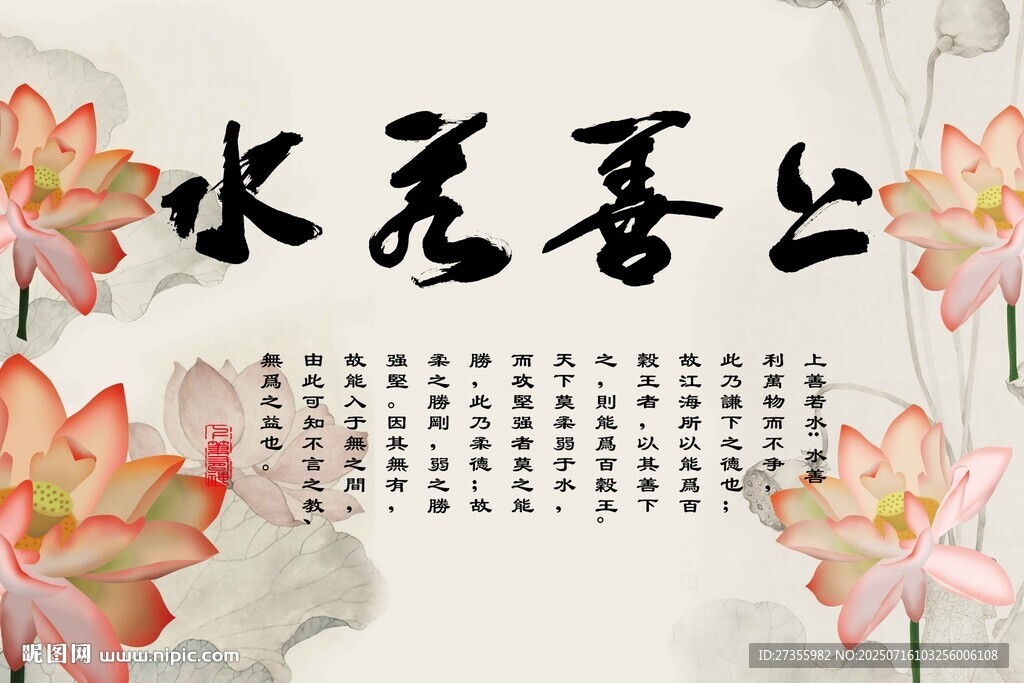 上善若水
上善若水:水善
利萬物而不爭,
此乃謙下之德也;
故江海所以能爲百
穀王者,以其善下
之,則能爲百穀王。
天下莫柔弱于水,
而攻堅强者莫之能
勝,此乃柔德;故
柔之勝剛,弱之勝
强堅。因其無有,
故能入于無之間,
由此可知不言之教、
無爲之益也。
昵图网 www.nipic.com
ID:27355982 NO:20250716103256006108